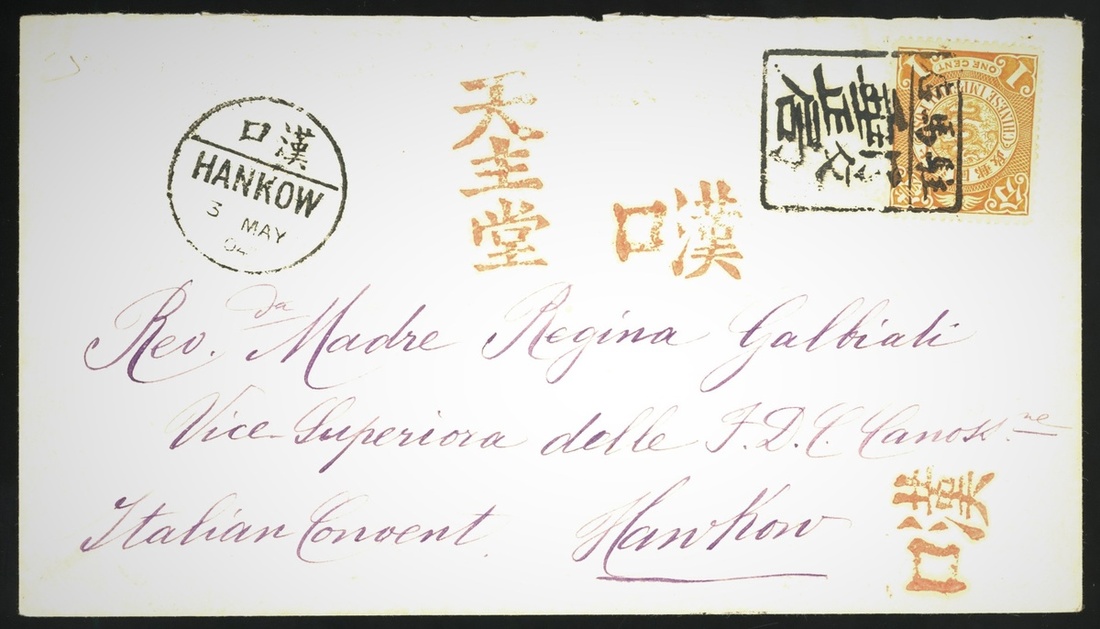 漢口
HANKOW
3 MAY
04
天主堂
漢口
1 ONE CENT 1
CHINESE IMPERIAL
Rev.da Madre Regina Galbiati
Vice Superiora delle F.D.C. Canoss.ne
Italian Convent. Hankow
漢口